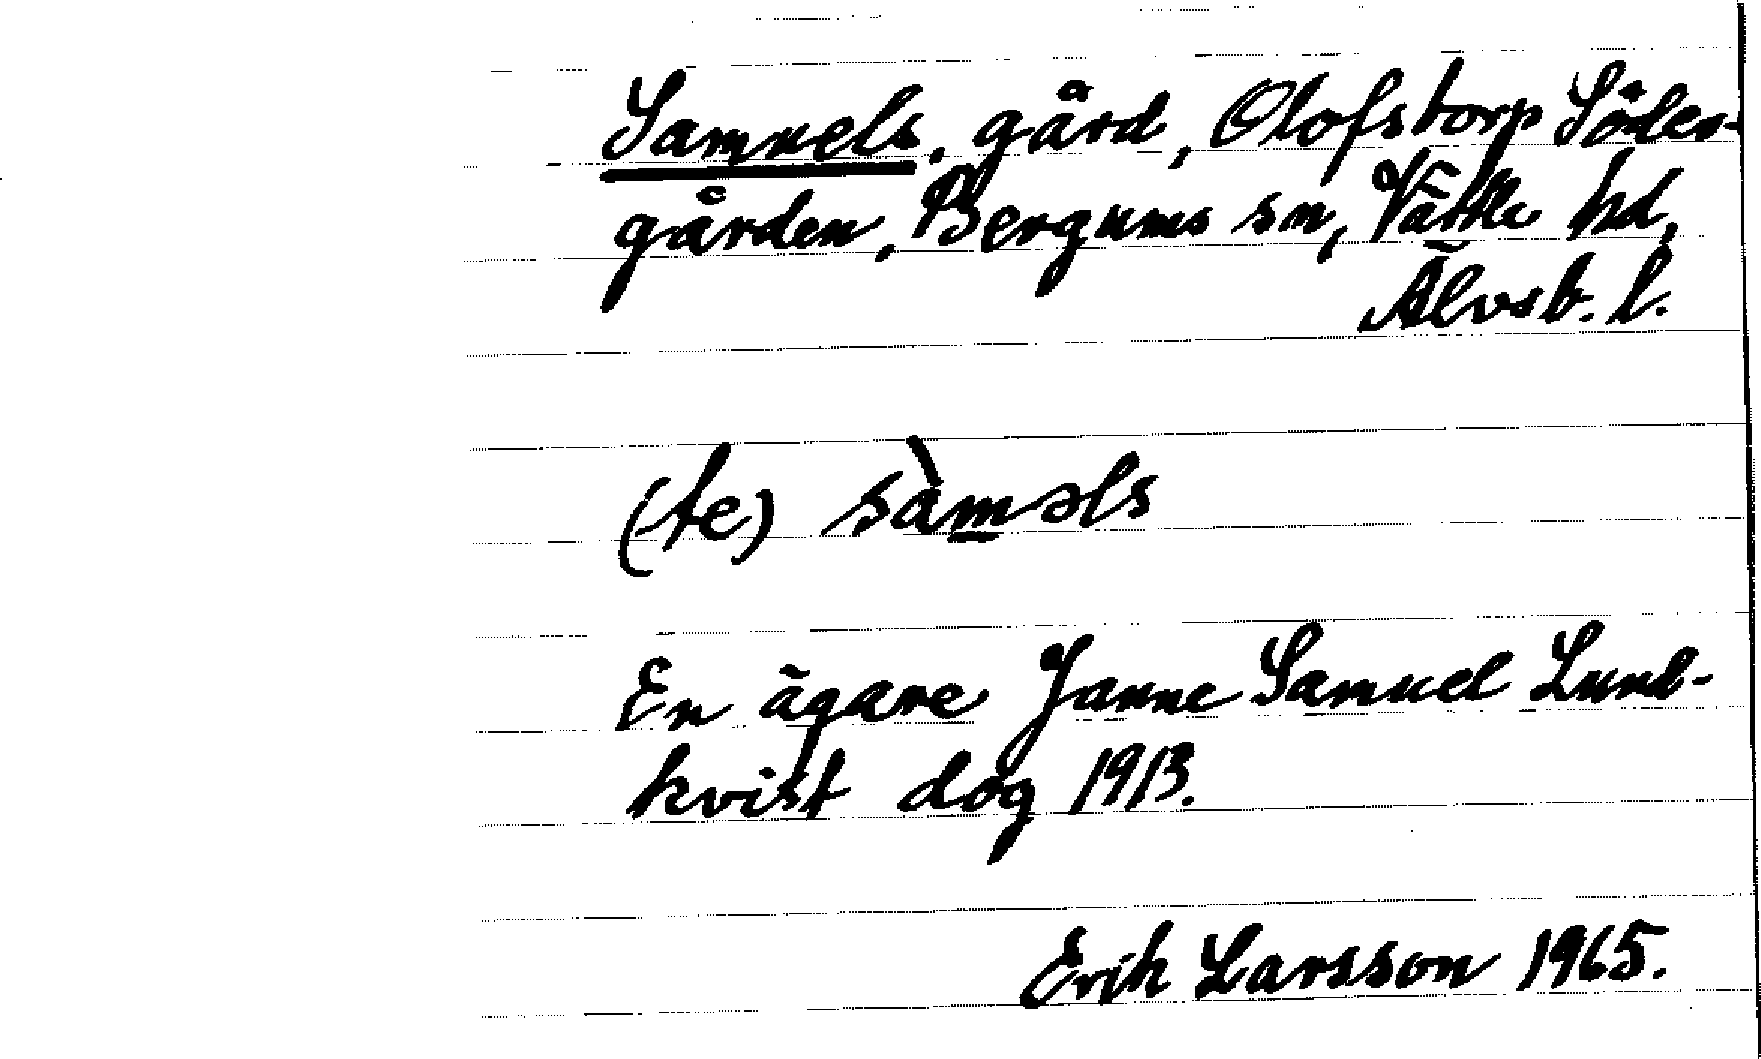 Samuels, gård, Olofstorp Söder-
gården, Bergums sn, Vättle hd,
Älvsb. l.
(te) sàm̲əls
En ägare Janne Samuel Lund-
kvist dog 1913.
Erik Larsson 1965.